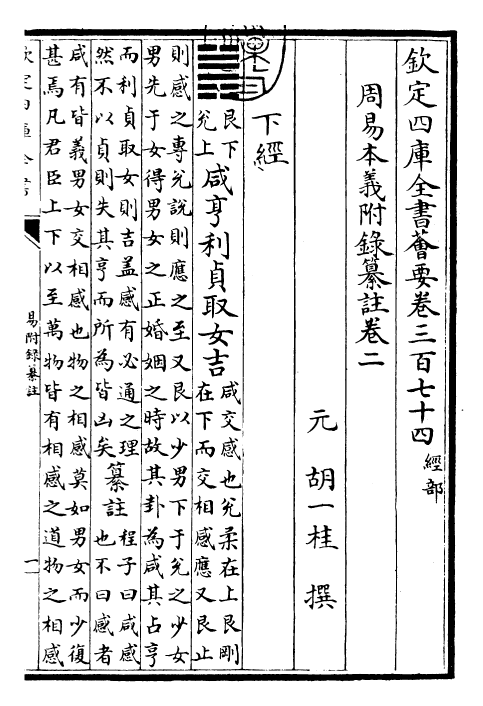 欽定四庫全書薈要卷三百七十四 經部
周易本義附錄纂註卷二
元 胡一桂 撰
下經
艮下
兌上
咸亨利貞取女吉
咸交感也兌柔在上艮剛
在下而交相感應又艮止
則感之專兌說則應之至又艮以少男下于兌之少女
男先于女得男女之正婚姻之時故其卦為咸其占亨
而利貞取女則吉蓋感有必通之理
然不以貞則失其亨而所為皆凶矣
纂註
程子曰咸感
也不曰感者
咸有皆義男女交相感也物之相感莫如男女而少復
甚焉凡君臣上下以至萬物皆有相感之道物之相感
欽定四庫全書
易附錄纂註
一